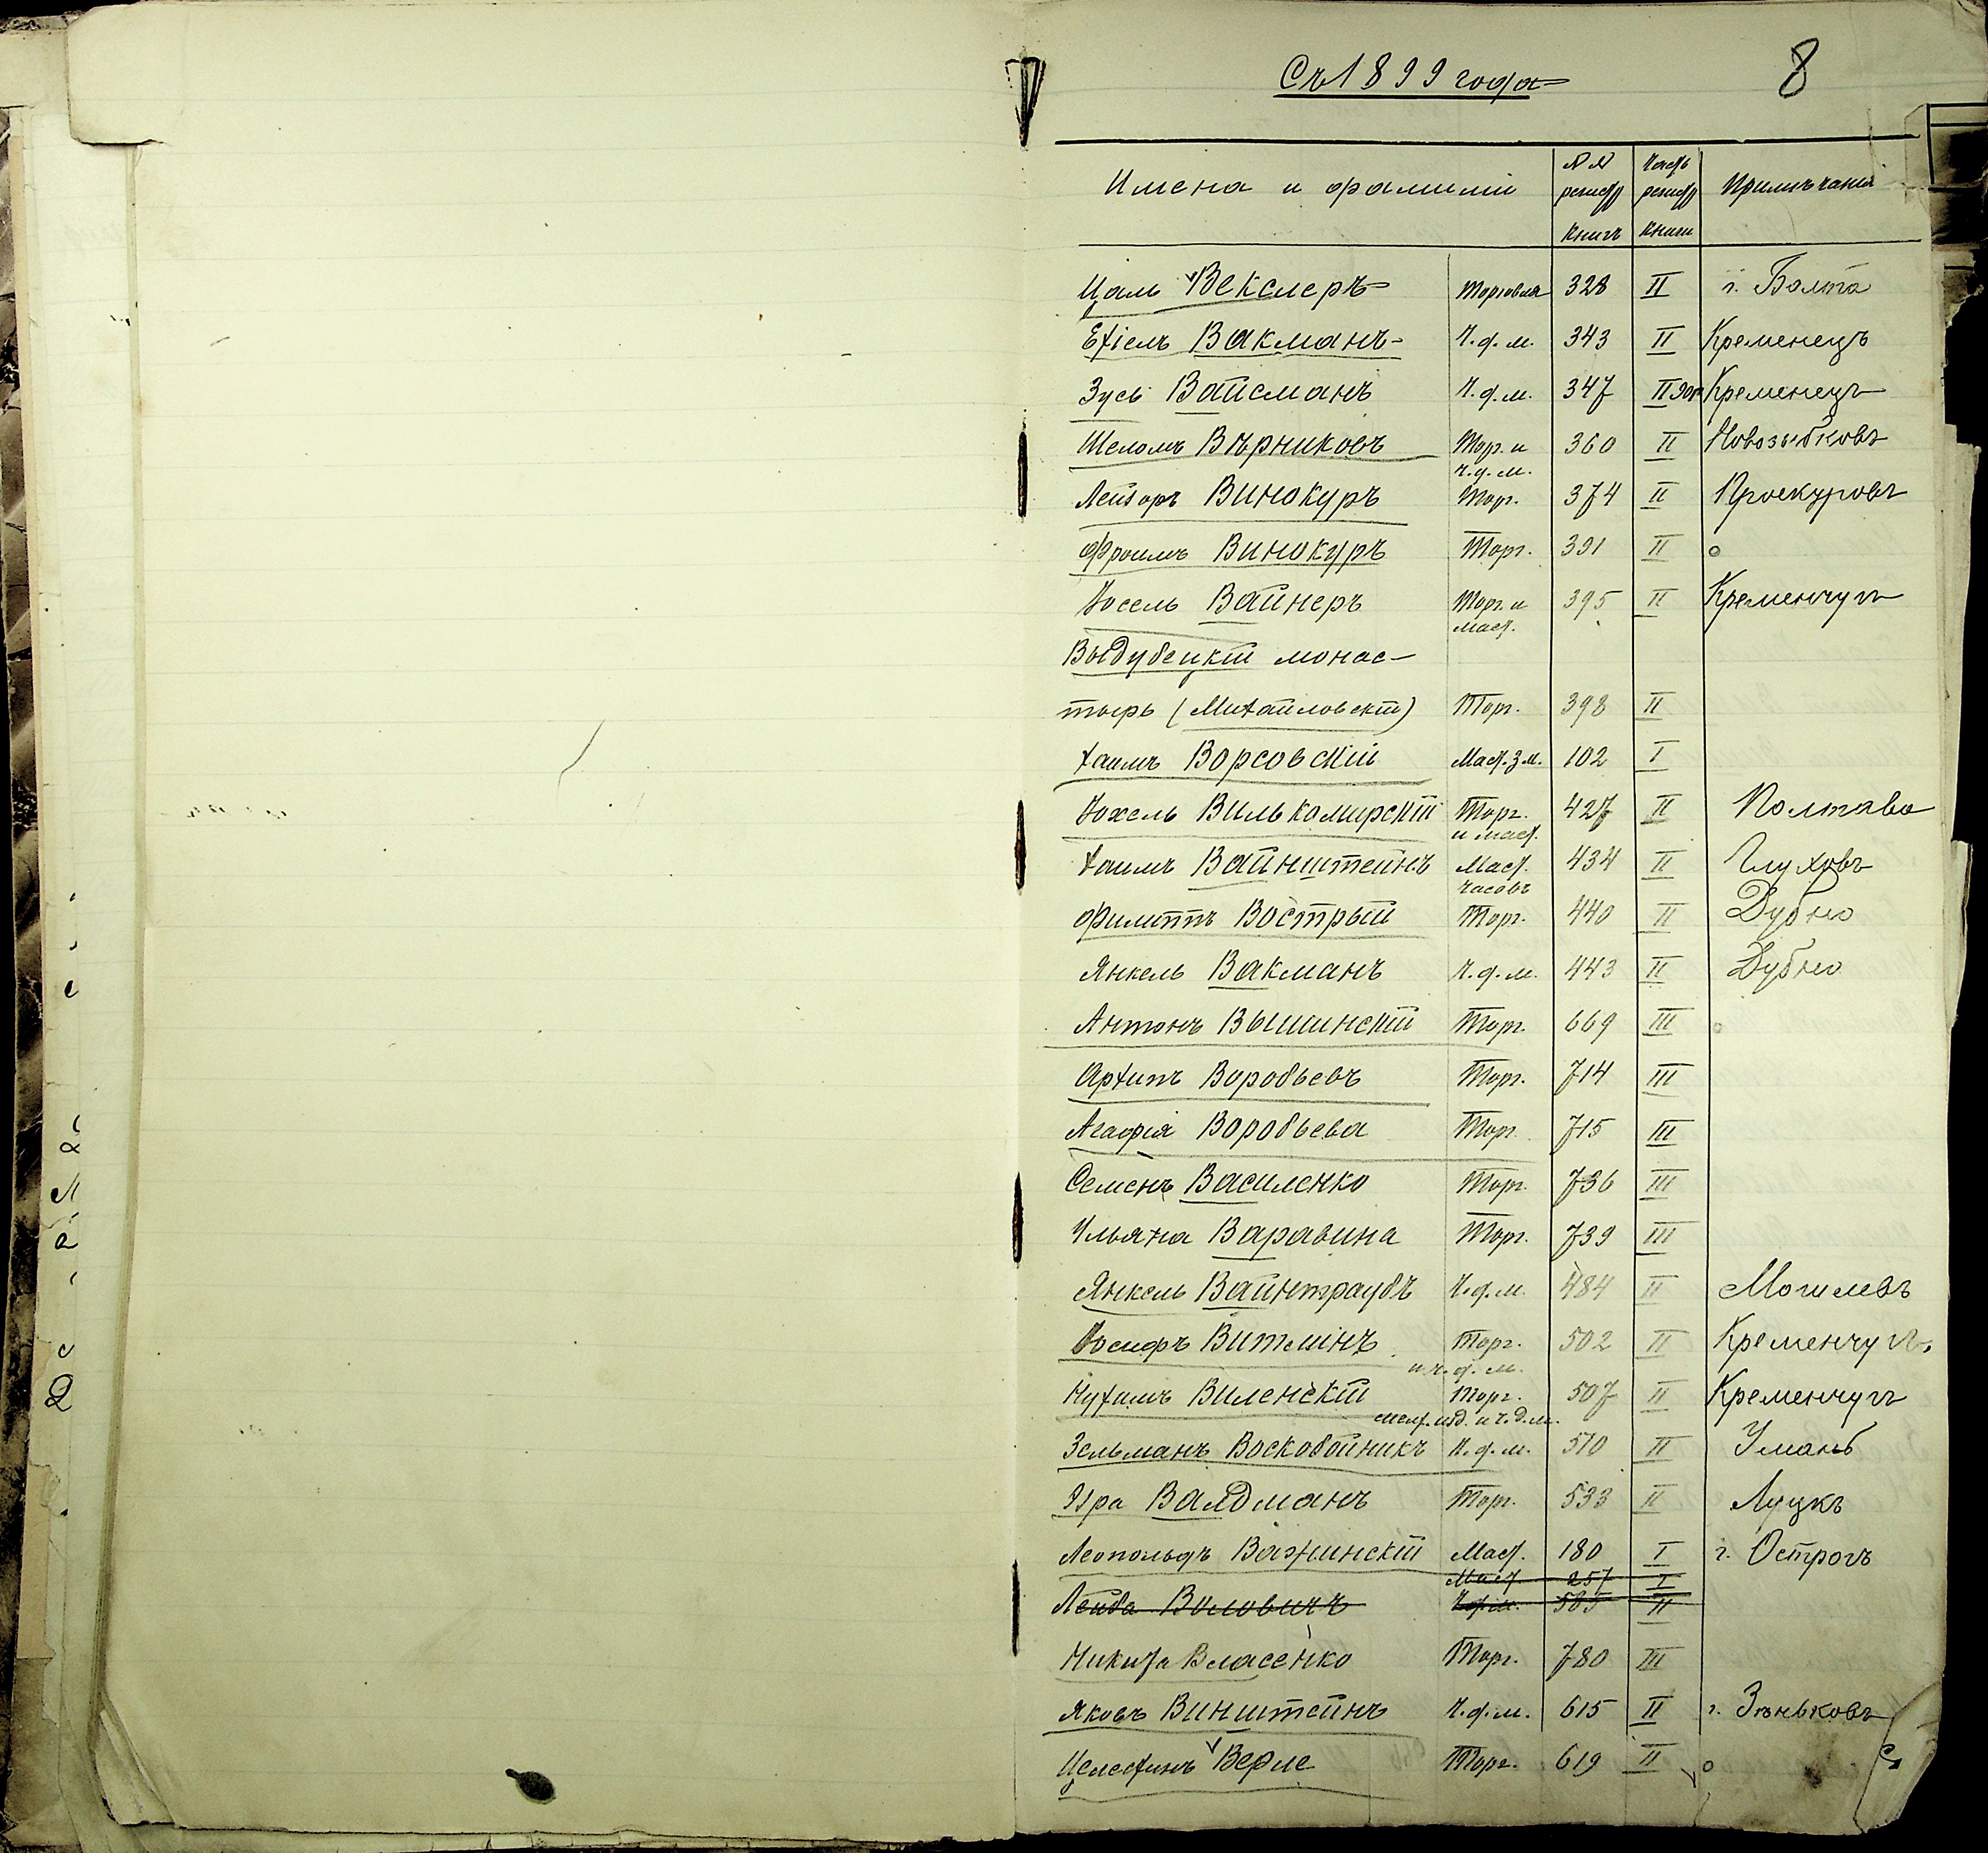 Съ 1899 года
8
Имена и фамиліи №№ регистр книгъ Часть регистр книги Примѣчанія
Цаль Векслеръ Торговля 328 II г. Балта
Ехіель Вакманъ Ч.д.м. 343 II Кременецъ
Зусь Вайсманъ Ч.д.м. 347 II Кременецъ
Шеломъ Вѣрниковъ Тор. и 360 II Новозыбковъ
ч.д.м.
Лейзоръ Винокуръ Тор. 374 II Проскуровъ
Фроимъ Винокуръ Торг. 391 II о
Іосель Вайнеръ Торг. и 395 II Кременчугъ
маст.
Выдубецкій монас-
тырь (Михайловскій) Торг. 398 II
Хаимъ Ворсовскій Маст. з.м. 102 I
Іохель Вилькомирскій Торг. 427 II Полтава
и маст.
Хаимъ Вайнштейнъ Маст. 434 II Глуховъ
часовъ
Филиппъ Вострый Торг. 440 II Дубно
Янкель Вакманъ ч.д.м. 443 II Дубно
Антонъ Вышинскій Торг. 669 III о
Архипъ Воробьевъ Торг. 714 III
Агафія Воробьева Торг. 715 III
Семенъ Василенко Торг. 736 III
Ульяна Варавина Торг. 739 III
Янкель Вайнтраубъ Ч.д.м. 484 II Могилевъ
Іосифъ Витлинъ Торг. 502 II Кременчугъ
и ч.д.м.
Нухимъ Виленскій Торг. 507 II Кременчугъ
и ч.д.м.
Зельманъ Воскобойникъ Ч.д.м. 510 II Умань
Эзра Валдманъ Торг. 533 II Луцкъ
Леопольдъ Важинскій Маст. 180 I г. Острогъ
Маст. 257 I
Лейба Воловичъ Ч.д.м. 585 II
Никита Власенко Торг. 780 III
Яковъ Винштейнъ Ч.д.м. 615 II г. Зѣньковъ
Целестинъ Верле Торг. 619 II о